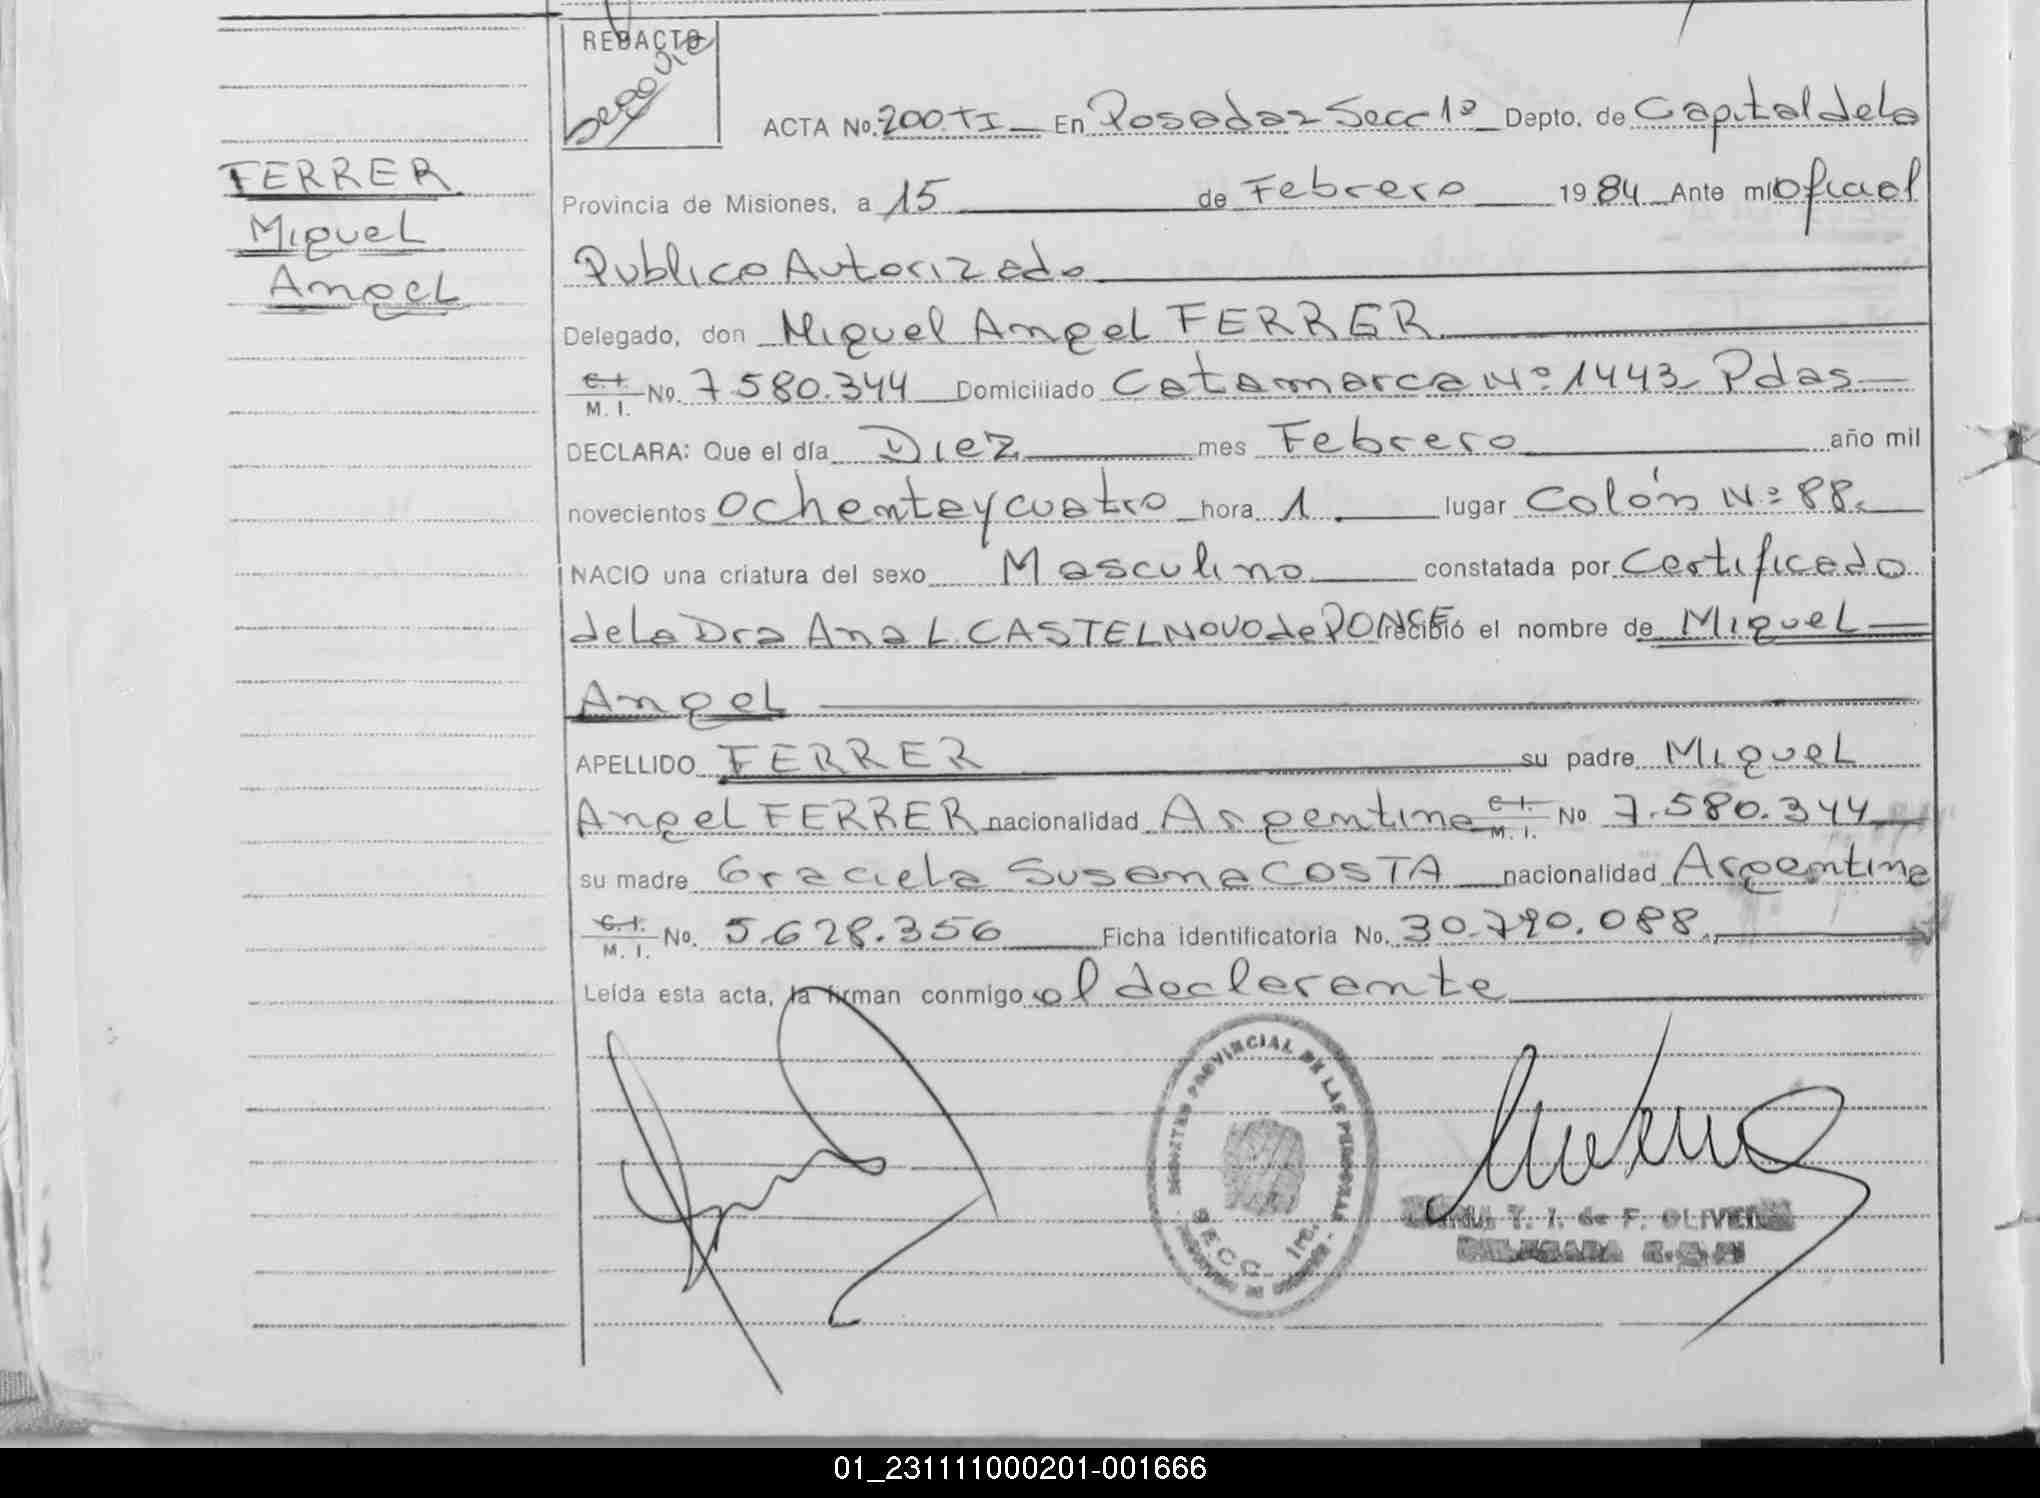 REDACTO
Segovia
ACTA No. 200 TI En Posadas Secc 1º Depto. de Capital de la
FERRER
Miguel
Angel
Provincia de Misiones, a 15 de Febrero 1984 Ante mí Oficial
Publico Autorizado
Delegado, don Miguel Angel FERRER
C. I. M. I. No. 7.580.344 Domiciliado Catamarca Nº 1443 Pdas
DECLARA: Que el día Diez mes Febrero año mil
novecientos Ochenta y cuatro hora 1. lugar Colón Nº 88.
NACIO una criatura del sexo Masculino constatada por Certificado
de la Dra Ana L. CASTELNOVO de PONCE recibió el nombre de Miguel
Angel
APELLIDO FERRER su padre Miguel
Angel FERRER nacionalidad Argentina C. I. M. I. No 7.580.344
su madre Graciela Susana COSTA nacionalidad Argentina
C. I. M. I. No. 5.628.356 Ficha identificatoria No. 30.790.088.
Leída esta acta, la firman conmigo el declarante
REGISTRO PROVINCIAL DE LAS PERSONAS
SECC. 1ra.
T. I. de F. OLIVEIRA
DELEGADA
01_231111000201-001666